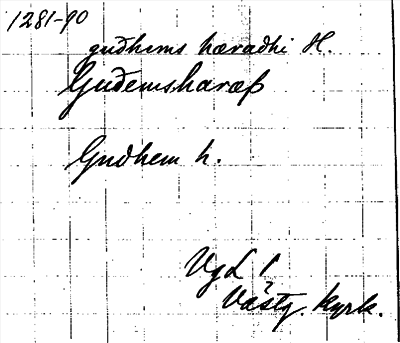 1281-90
guðhems hæraðhi H.
Guðemshæræþ
Gudhem h.
VgL 1
Västg. kyrk.